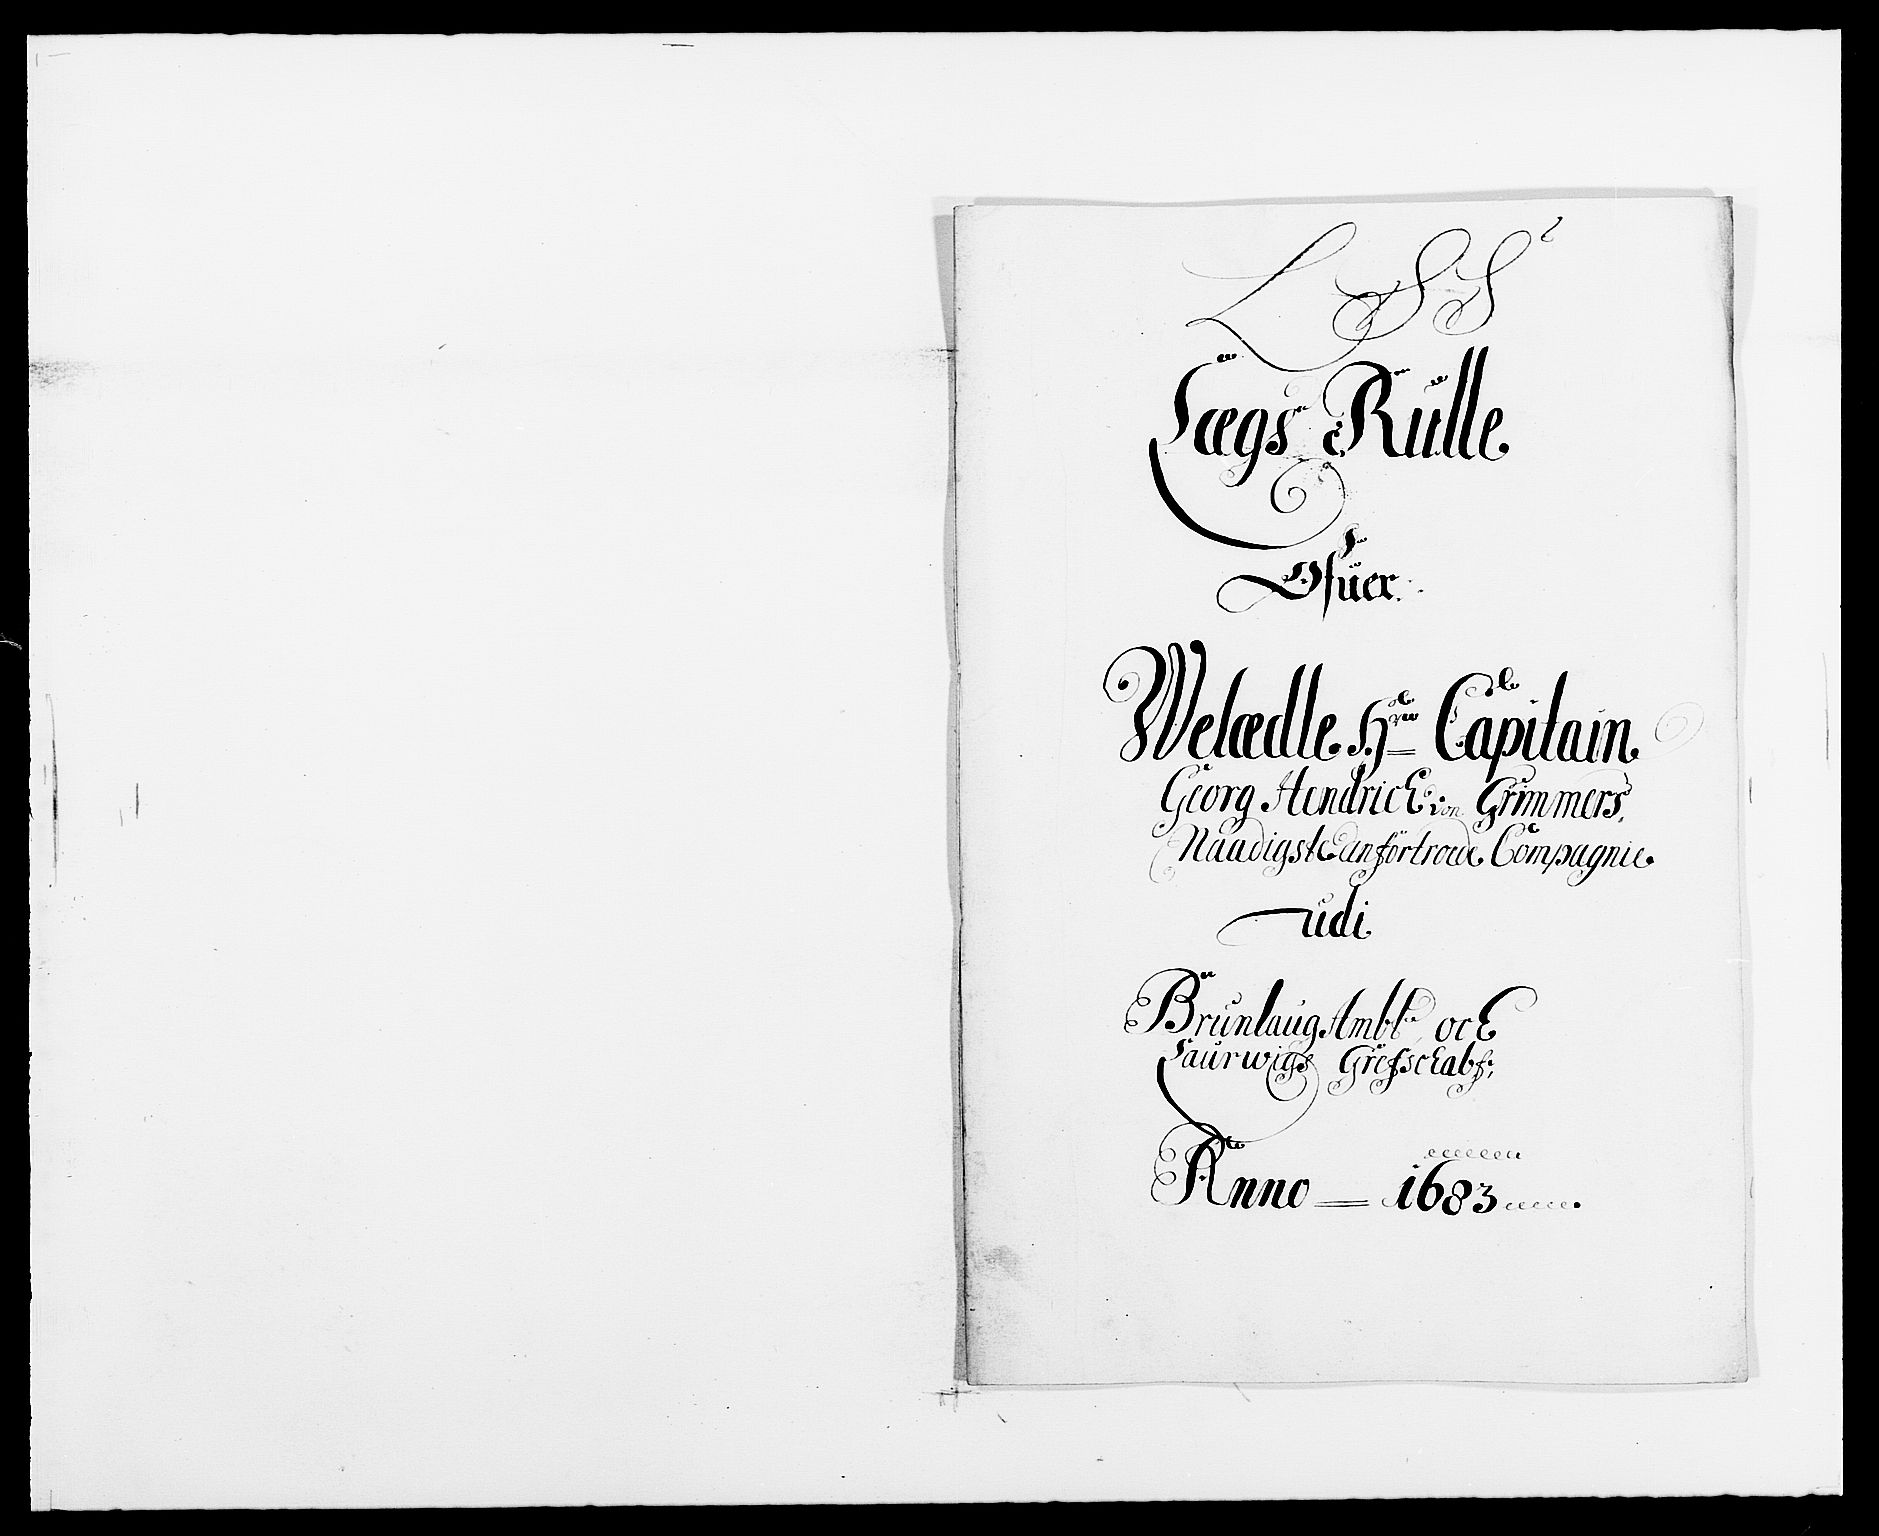 L S S
Lægs Rulle
Ofuer
Welædle Hr Capitain
Georg Hendrich von Grimmers,
Naadigste anförtroede Compagnie
udi
Brunlaug Ambt, och
Laurwigs Grefschabf,
Anno 1683